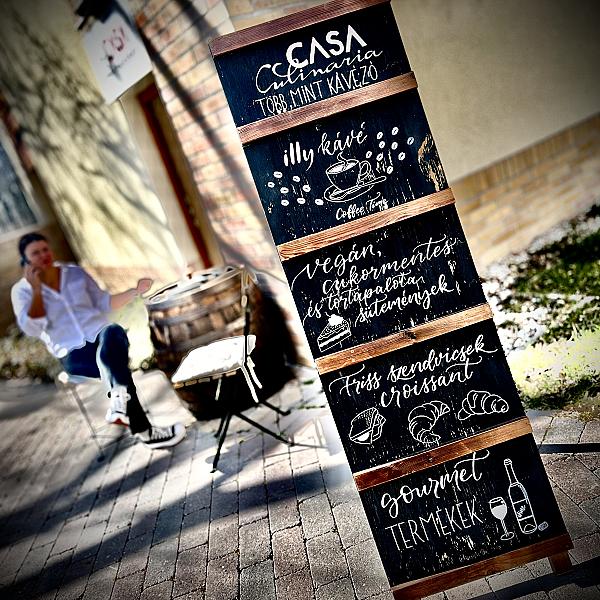 CASA
Culinaria
TÖBB, MINT KÁVÉZÓ
illy kávé
Coffee Time
vegán,
cukormentes
és tortapalota
sütemények
Friss szendvicsek
croissant
gourmet
TERMÉKEK